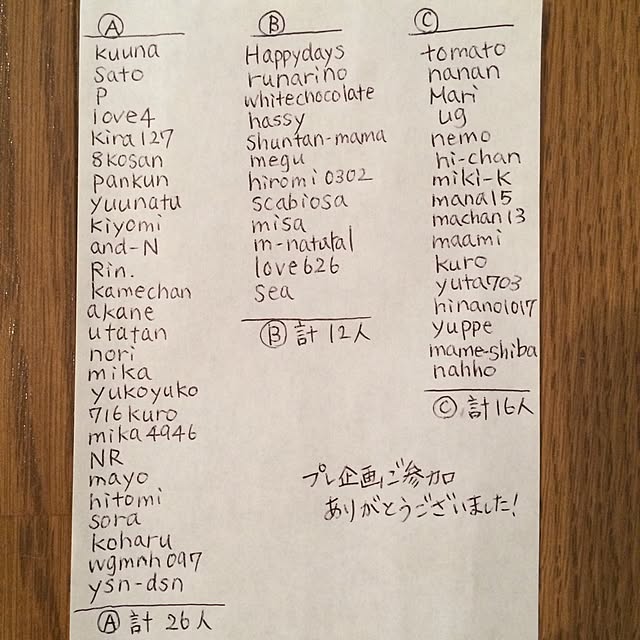 Ⓐ
kuuna
Sato
P
love4
kira127
8kosan
pankun
yuunatu
kiyomi
and-N
Rin.
kamechan
akane
utatan
nori
mika
yukoyuko
716kuro
mika4946
NR
mayo
hitomi
sora
koharu
wgmnh097
ysn-dsn
Ⓐ 計 26人
Ⓑ
Happydays
runarino
whitechocolate
hassy
shuntan-mama
megu
hiromi0302
scabiosa
misa
m-natural
love626
sea
Ⓑ 計 12人
Ⓒ
tomato
nanan
Mari
ug
nemo
hi-chan
miki-K
mana15
machan13
maami
kuro
yuta703
hinano1017
yuppe
mame-shiba
nahho
Ⓒ 計16人
プレ企画ご参加
ありがとうございました!